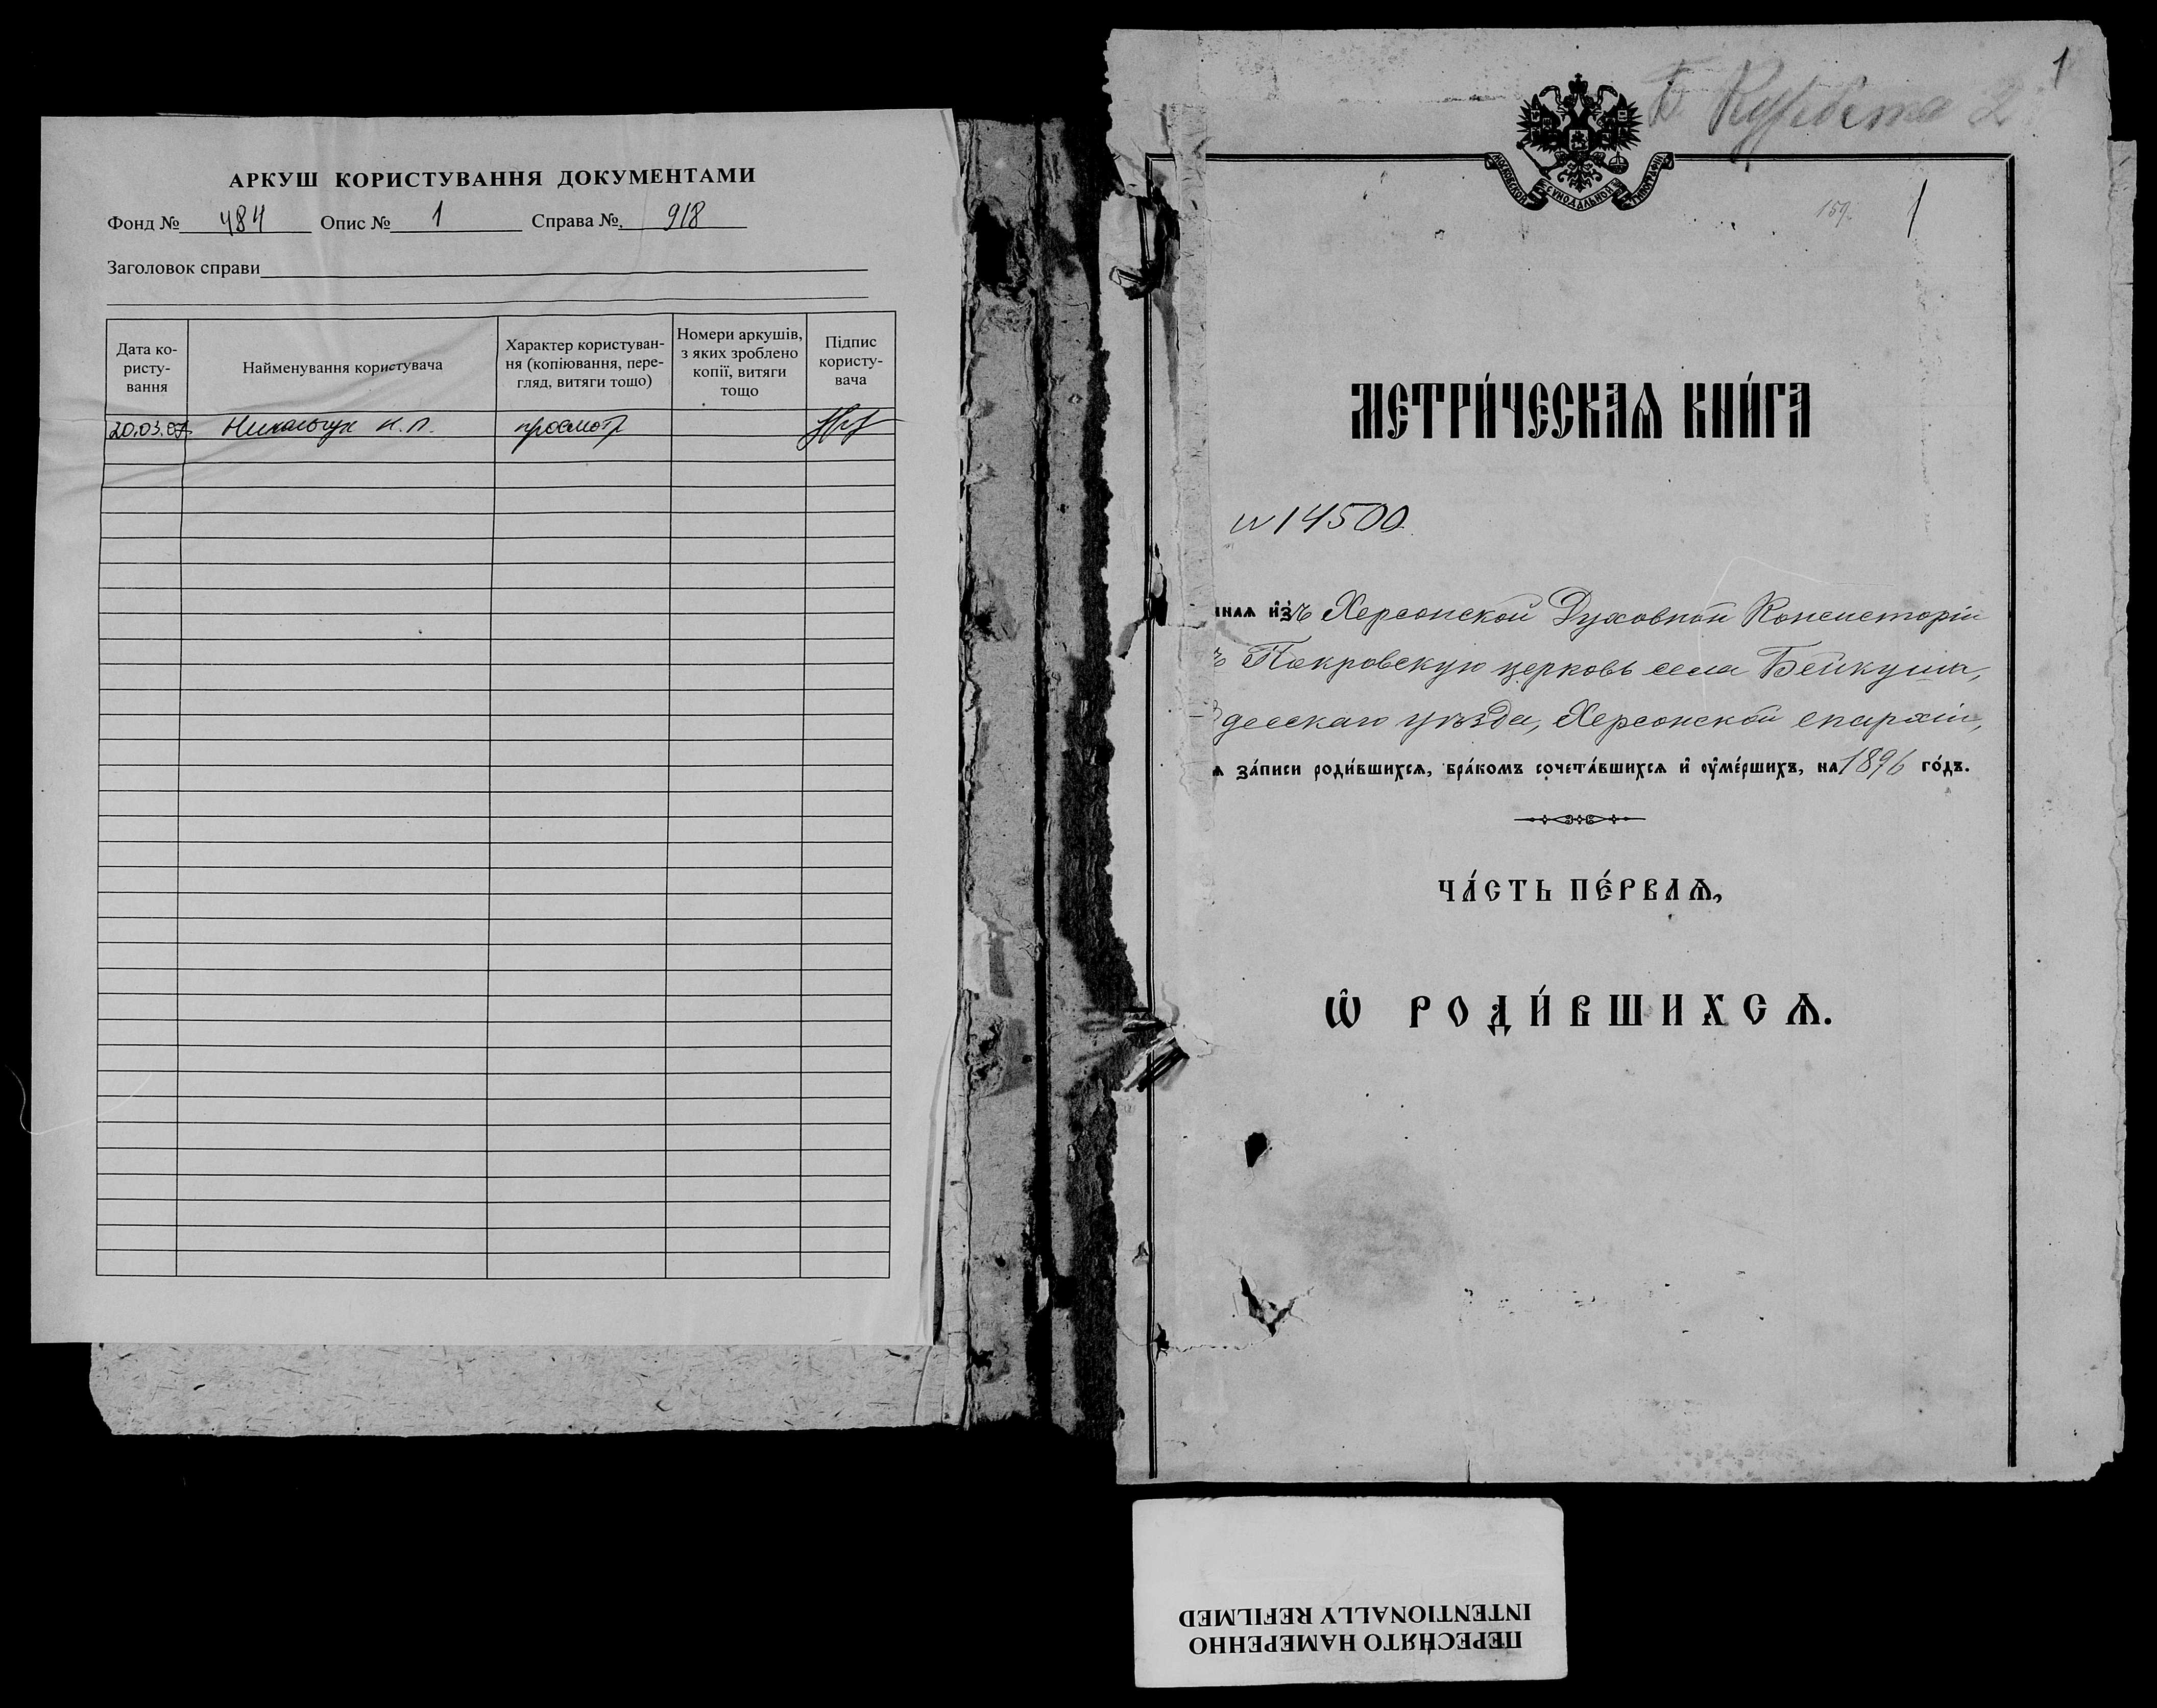 АРКУШ КОРИСТУВАННЯ ДОКУМЕНТАМИ
Фонд № 484 Опис № 1 Справа № 918
Заголовок справи
Дата ко-
ристу-
вання
Найменування користувача
Характер користуван-
ня (копіювання, пере-
гляд, витяги тощо)
Номери аркушів,
з яких зроблено
копії, витяги
тощо
Підпис
користу-
вача
20.03.07 просмотр
1
Б 2
МОСКОВСКОЙ СѴНОДАЛЬНОЙ ТИПОГРАФІИ
159. 1
МЕТРИ́ЧЕСКАѦ КНИ́ГА
№ 14500
ннаѧ и҆зъ Херсонской Духовной Консисторіи
ъ Покровскую церковь села Бейкуша,
десскаго уѣзда, Херсонской епархіи,
ѧ за́писи роди́вшихсѧ, бра́комъ сочета́вшихсѧ и҆ ᲂу҆ме́ршихъ, на 1896 го́дъ.
ЧА́СТЬ ПЕ́РВАѦ,
Ѡ҆ РОДИ́ВШИХСѦ.
ПЕРЕСНЯТО НАМЕРЕННО
INTENTIONALLY REFILMED